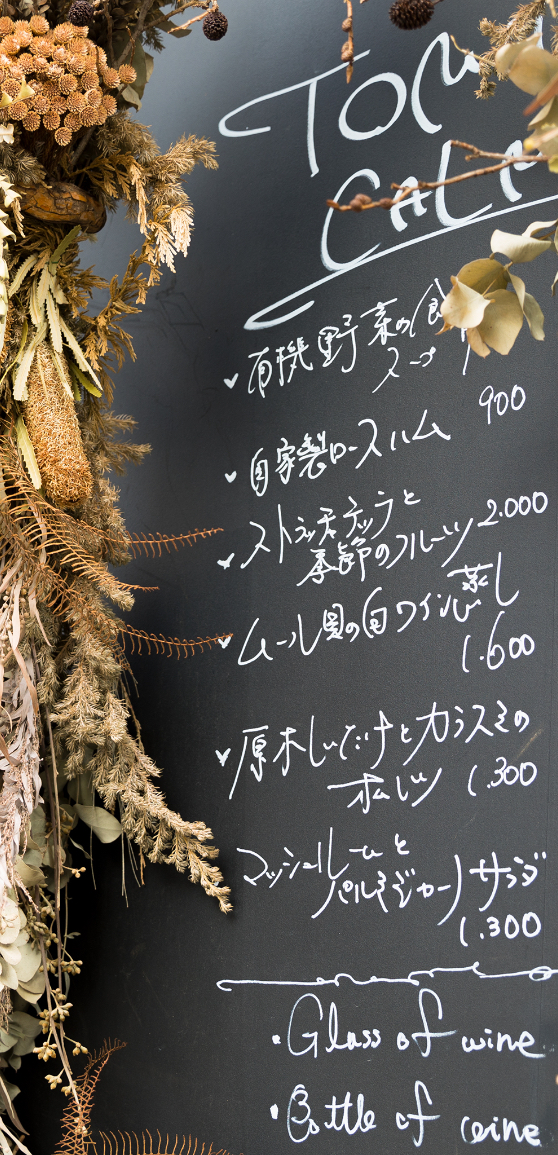 TOM
CALM
有機野菜の食
スープ
900
自家製ロースハム
ストラッチャテッラと
季節のフルーツ 2.000
ムール貝の白ワイン蒸し
1.600
原木しいたけとカラスミの
オムレツ 1.300
マッシュルームと
パルミジャーノサラダ
1.300
Glass of wine
Bottle of wine